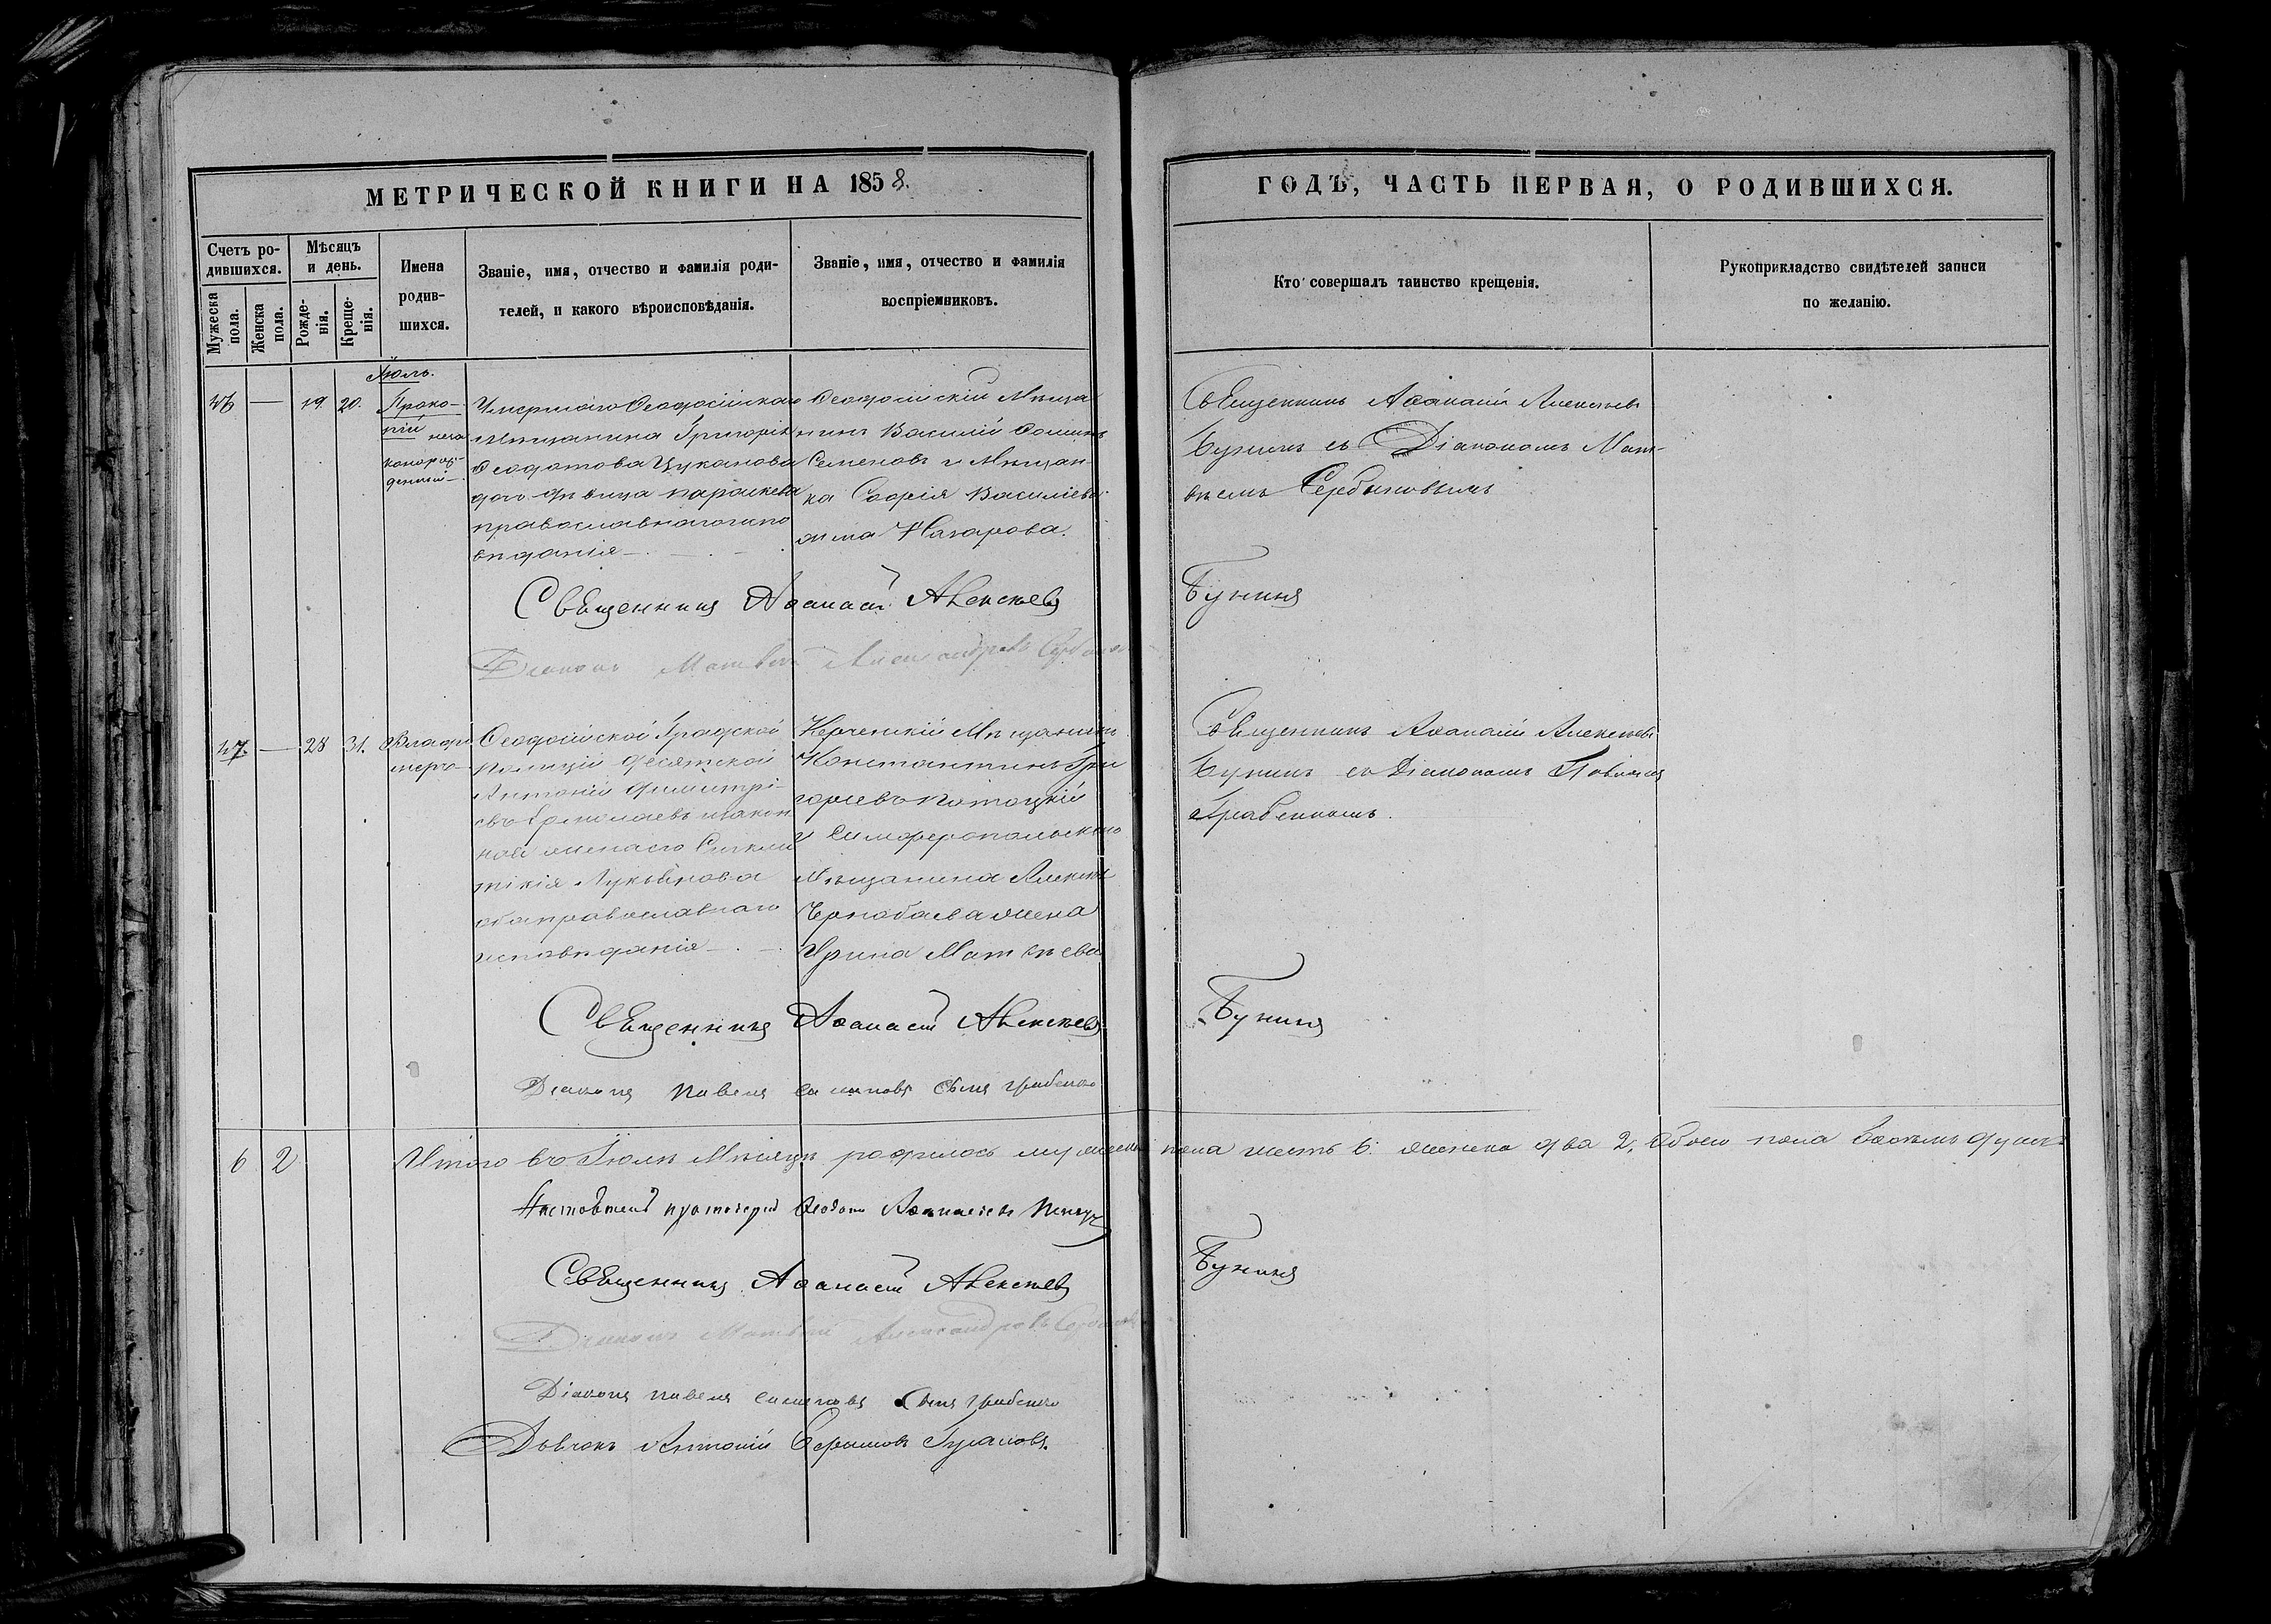 МЕТРИЧЕСКОЙ КНИГИ НА 1858.
ГОДЪ, ЧАСТЬ ПЕРВАЯ, О РОДИВШИХСЯ.
Счетъ ро-
дившихся.
Мужеска
пола.
Женска
пола.
Мѣсяцъ
и день.
Рожде-
нія.
Креще-
нія.
Имена
родив-
шихся.
Званіе, имя, отчество и фамилія роди-
телей, и какого вѣроисповѣданія.
Званіе, имя, отчество и фамилія
воспріемниковъ.
Кто совершалъ таинство крещенія.
Рукоприкладство свидѣтелей записи
по желанію.
Іюль.
46 — 19. 20.
Проко-
пій неза
конорож-
денный
Умершаго Ѳеодосійскаго
Мѣщанина Григорія
Ѳеодотова Цуканова
доч. дѣвица Параскева
православнаго испо
вѣданія
Ѳеодосійскій Мѣща
нинъ Василій Ѳоминъ
Семеновъ и Мѣщан-
ка Софія Василіева
Назарова.
Священникъ Аѳанасій Алексѣевъ
Бунинъ съ Діакономъ Мат-
вѣемъ Сербиновымъ
Священникъ Аѳанасій Алексѣевъ
Бунинъ
Діаконъ Матвѣй Александровъ
47. — 28 31. Влади
міръ
Ѳеодосійской Градской
полиціи десятской
Антоній Димитрі-
евъ Ермолаевъ и закон
ная жена его Синкли
тикія Лукьянова
оба православнаго
исповѣданія
Керченскій Мѣщанинъ
Константинъ Гри
горьевъ Потоцкій
и Симферопольскаго
Мѣщанина Алексѣя
Чернобаева жена
Ирина Матвѣева
Священникъ Аѳанасій Алексѣевъ
Бунинъ съ Діакономъ Павломъ
Грабенкомъ.
Священникъ Аѳанасій Алексѣевъ
Бунинъ
Діаконъ Павелъ сынъ Грабенко
6 2 Итого въ Іюлѣ Мѣсяцѣ родилось мужеска пола шесть 6. женска два 2, обоего пола восемь душъ
протоіерей Аѳанасіевъ
Священникъ Аѳанасій Алексѣевъ
Бунинъ
Діаконъ Матвѣй Александровъ
Діаконъ Павелъ сынъ Грабенко
Дьячокъ Антоній